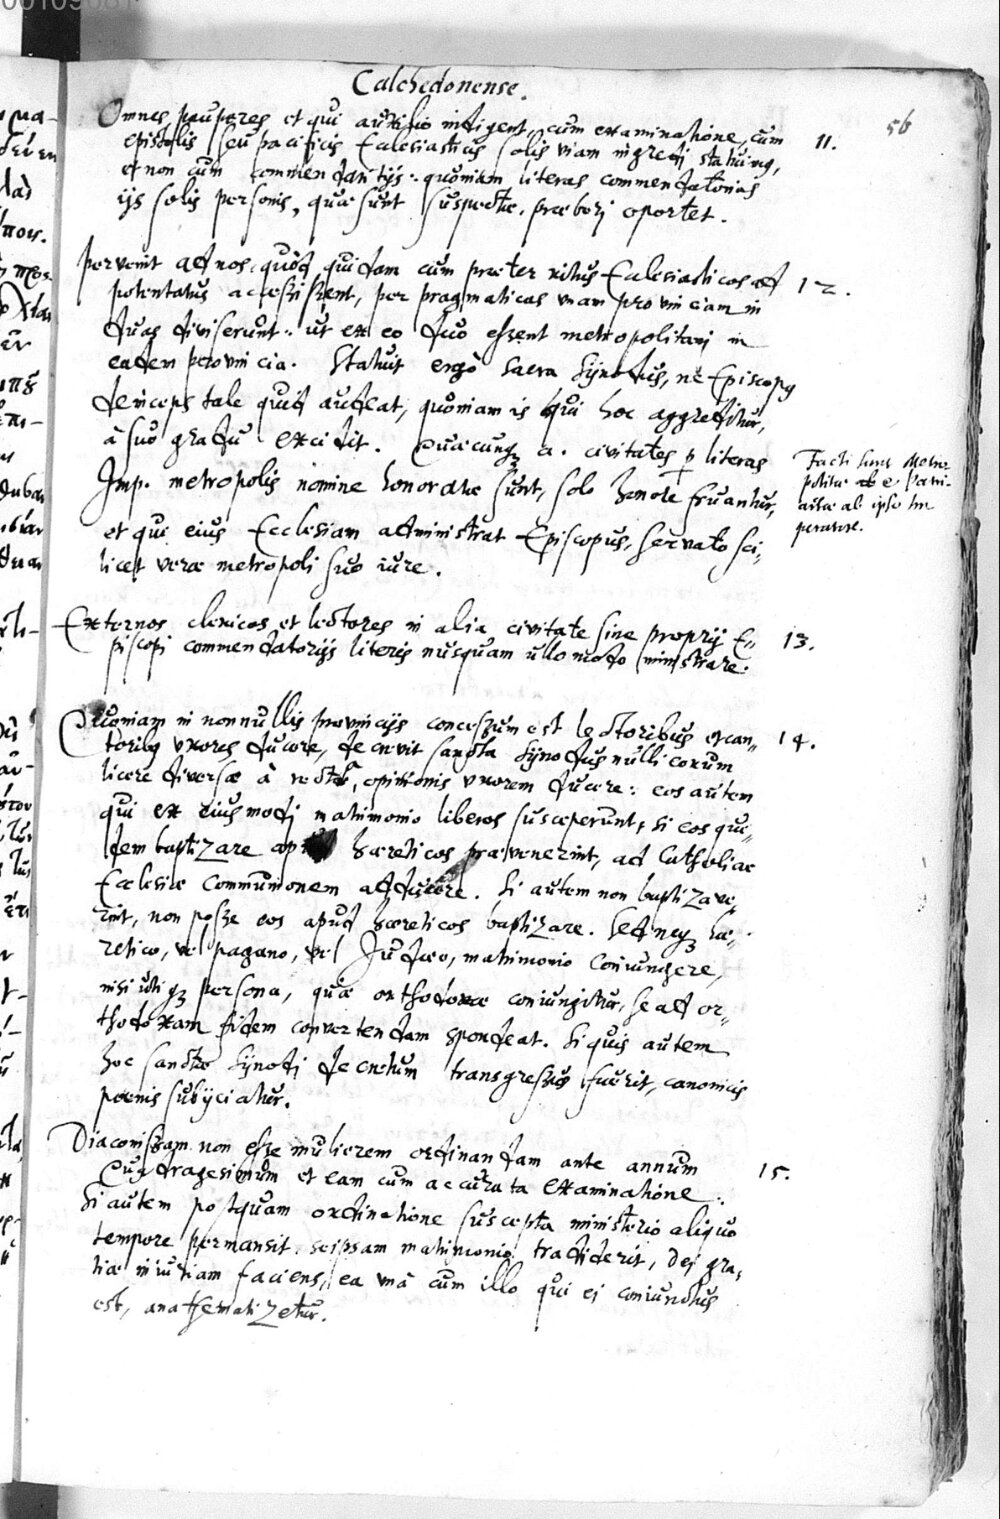 Calchedonense.
56
Omnes pauperes et qui auxilio indigent, cum examinatione, cum 11.
epistolis seu pacificis Ecclesiasticis solis viam ingredi statuimus,
et non cum commendatitijs: quoniam literas commendatorias
ijs solis personis, quæ sunt suspectæ, præberi oportet.
Pervenit ad nos, quod quidam cum præter ritus Ecclesiasticos ad 12.
potentatus accessissent, per pragmaticas unam provinciam in
duas diviserunt: ut ex eo duo essent metropolitani in
eadem provincia. Statuit ergò sacra Synodus, nè Episcopus
deinceps tale quid audeat, quoniam is qui hoc aggreditur,
à suo gradu excidit. Quæcunq; a. civitates p literas
Imp. metropolis nomine honoratæ sunt, solo honore fruantur,
et qui eius Ecclesiam administrat Episcopus, servato sci-
licet veræ metropoli suo iure.
Facti sunt Metro
politæ et e Patri-
archæ ab ipso Im
peratore.
Externos clericos et lectores in alia civitate sine proprij E- 13.
piscopi commendatorijs literis nusquam ullo modo ministrare.
Quoniam in nonnullis provincijs concessum est lectoribus et can- 14.
toribus uxores ducere, decrevit sancta Synodus nulli eorum
licere diversæ à recta opinionis uxorem ducere: eos autem
qui ex eiusmodi matrimonio liberos susceperunt, si eos qui-
dem baptizare apud hæreticos prævenerint, ad Catholicæ
Ecclesiæ communionem adducere. Si autem non baptizave-
rint, non posse eos apud hæreticos baptizare. Sed neq; hæ-
retico, vel pagano, vel Judæo, matrimonio coniungere,
nisi utiq; persona, quæ orthodoxæ coniungitur, se ad or-
thodoxam fidem convertendam spondeat. Si quis autem
hoc sanctæ Synodi decretum transgressus fuerit, canonicis
poenis subijciatur.
Diaconissam non esse mulierem ordinandam ante annum 15.
Quadragesimum et eam cum accurata examinatione.
Si autem postquam ordinatione suscepta ministerio aliquo
tempore permansit, seipsam matrimonio tradiderit, Dei gra-
tiæ iniuriam faciens, ea unà cum illo qui ei coniunctus
est, anathematizetur.